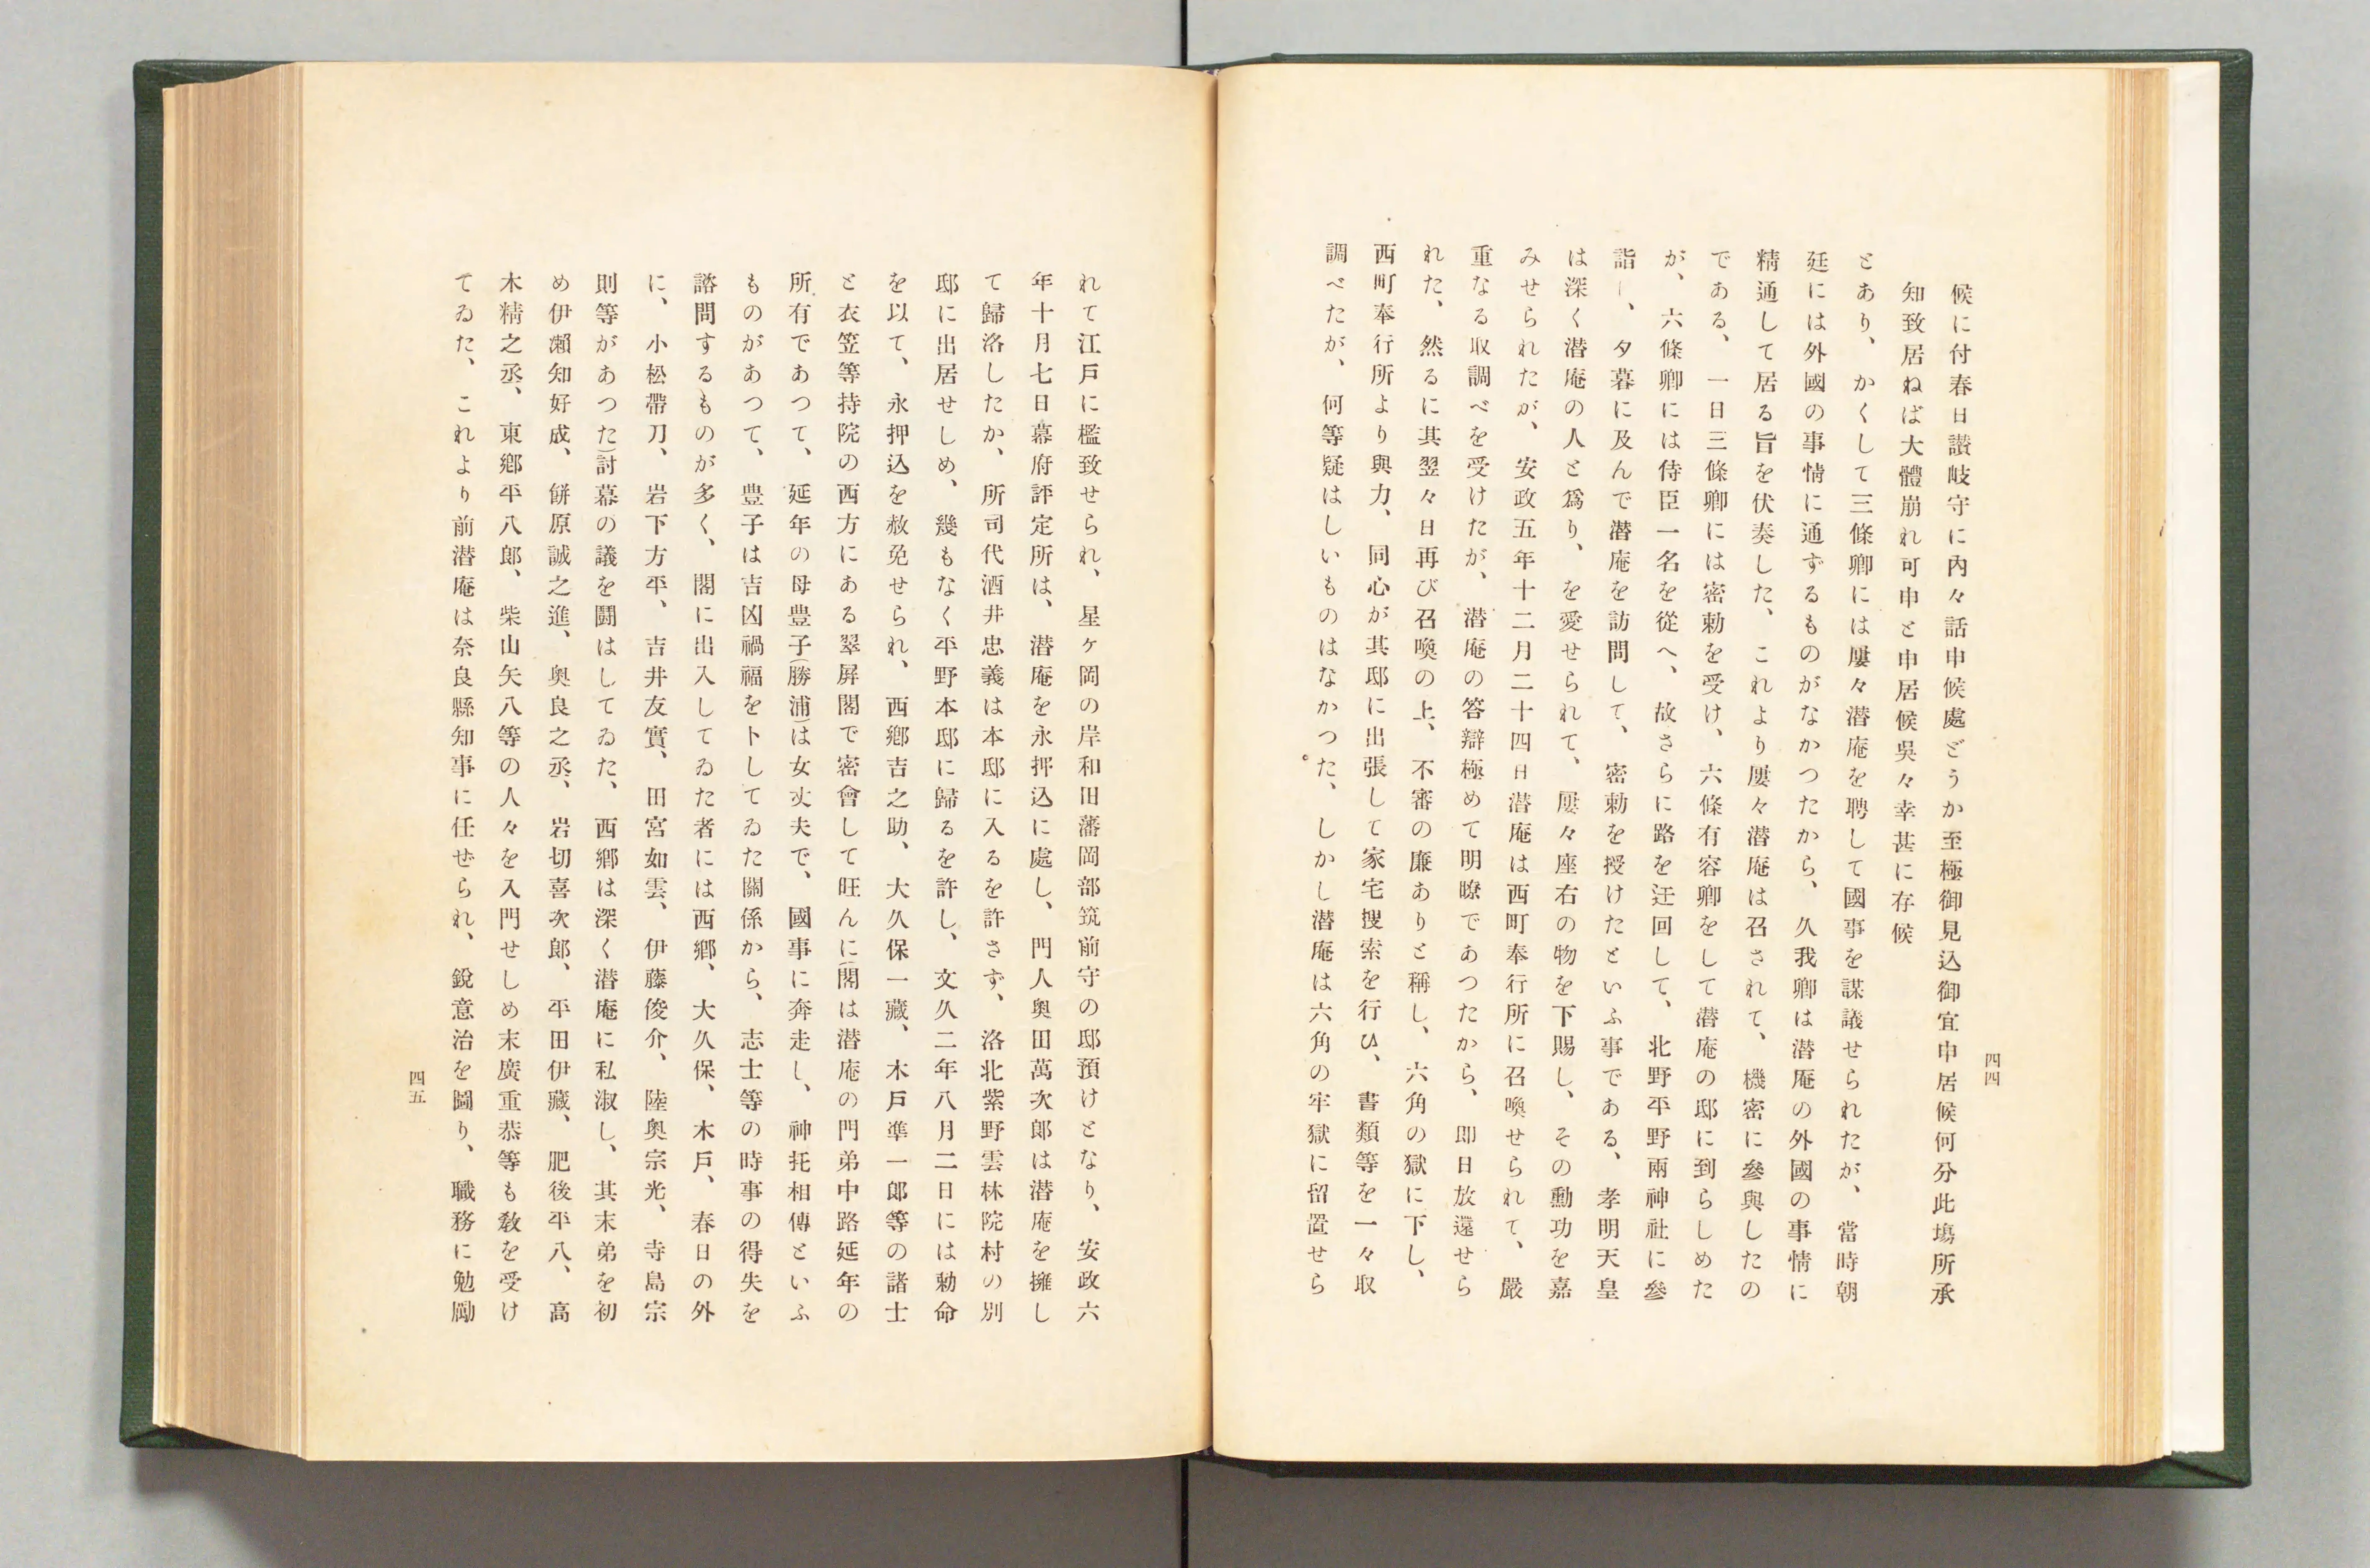 四四
候に付春日讃岐守に內々話申候處どうか至極御見込御宜申居候何分此塲所承
知致居ねば大體崩れ可申と申居候吳々幸甚に存候
とあり、かくして三條卿には屢々潜庵を聘して國事を謀議せられたが、當時朝
廷には外國の事情に通ずるものがなかつたから、久我卿は潜庵の外國の事情に
精通して居る旨を伏奏した、これより屢々潜庵は召されて、機密に參與したの
である、一日三條卿には密勅を受け、六條有容卿をして潜庵の邸に到らしめた
が、六條卿には侍臣一名を從へ、故さらに路を迂回して、北野平野兩神社に參
詣し、夕暮に及んで潜庵を訪問して、密勅を授けたといふ事である、孝明天皇
は深く潜庵の人と爲り、を愛せられて、屢々座右の物を下賜し、その勳功を嘉
みせられたが、安政五年十二月二十四日潜庵は西町奉行所に召喚せられて、嚴
重なる取調べを受けたが、潜庵の答辯極めて明瞭であつたから、即日放還せら
れた、然るに其翌々日再び召喚の上、不審の廉ありと稱し、六角の獄に下し、
西町奉行所より與力、同心が其邸に出張して家宅搜索を行ひ、書類等を一々取
調べたが、何等疑はしいものはなかつた、しかし潜庵は六角の牢獄に留置せら
れて江戶に檻致せられ、星ヶ岡の岸和田藩岡部筑前守の邸預けとなり、安政六
年十月七日幕府評定所は、潜庵を永押込に處し、門人奧田萬次郞は潜庵を擁し
て歸洛したか、所司代酒井忠義は本邸に入るを許さず、洛北紫野雲林院村の別
邸に出居せしめ、幾もなく平野本邸に歸るを許し、文久二年八月二日には勅命
を以て、永押込を赦免せられ、西鄕吉之助、大久保一藏、木戶準一郞等の諸士
と衣笠等持院の西方にある翠屛閣で密會して旺んに(閣は潜庵の門弟中路延年の
所有であつて、延年の母豊子(勝浦)は女丈夫で、國事に奔走し、神托相傳といふ
ものがあつて、豊子は吉凶禍福を卜してゐた關係から、志士等の時事の得失を
諮問するものが多く、閣に出入してゐた者には西鄕、大久保、木戶、春日の外
に、小松帶刀、岩下方平、吉井友實、田宮如雲、伊藤俊介、陸奧宗光、寺島宗
則等があつた)討幕の議を鬪はしてゐた、西鄕は深く潜庵に私淑し、其末弟を初
め伊瀨知好成、餅原誠之進、奧良之丞、岩切喜次郞、平田伊藏、肥後平八、高
木精之丞、東鄕平八郞、柴山矢八等の人々を入門せしめ末廣重恭等も敎を受け
てゐた、これより前潜庵は奈良縣知事に任ぜられ、銳意治を圖り、職務に勉勵
四五